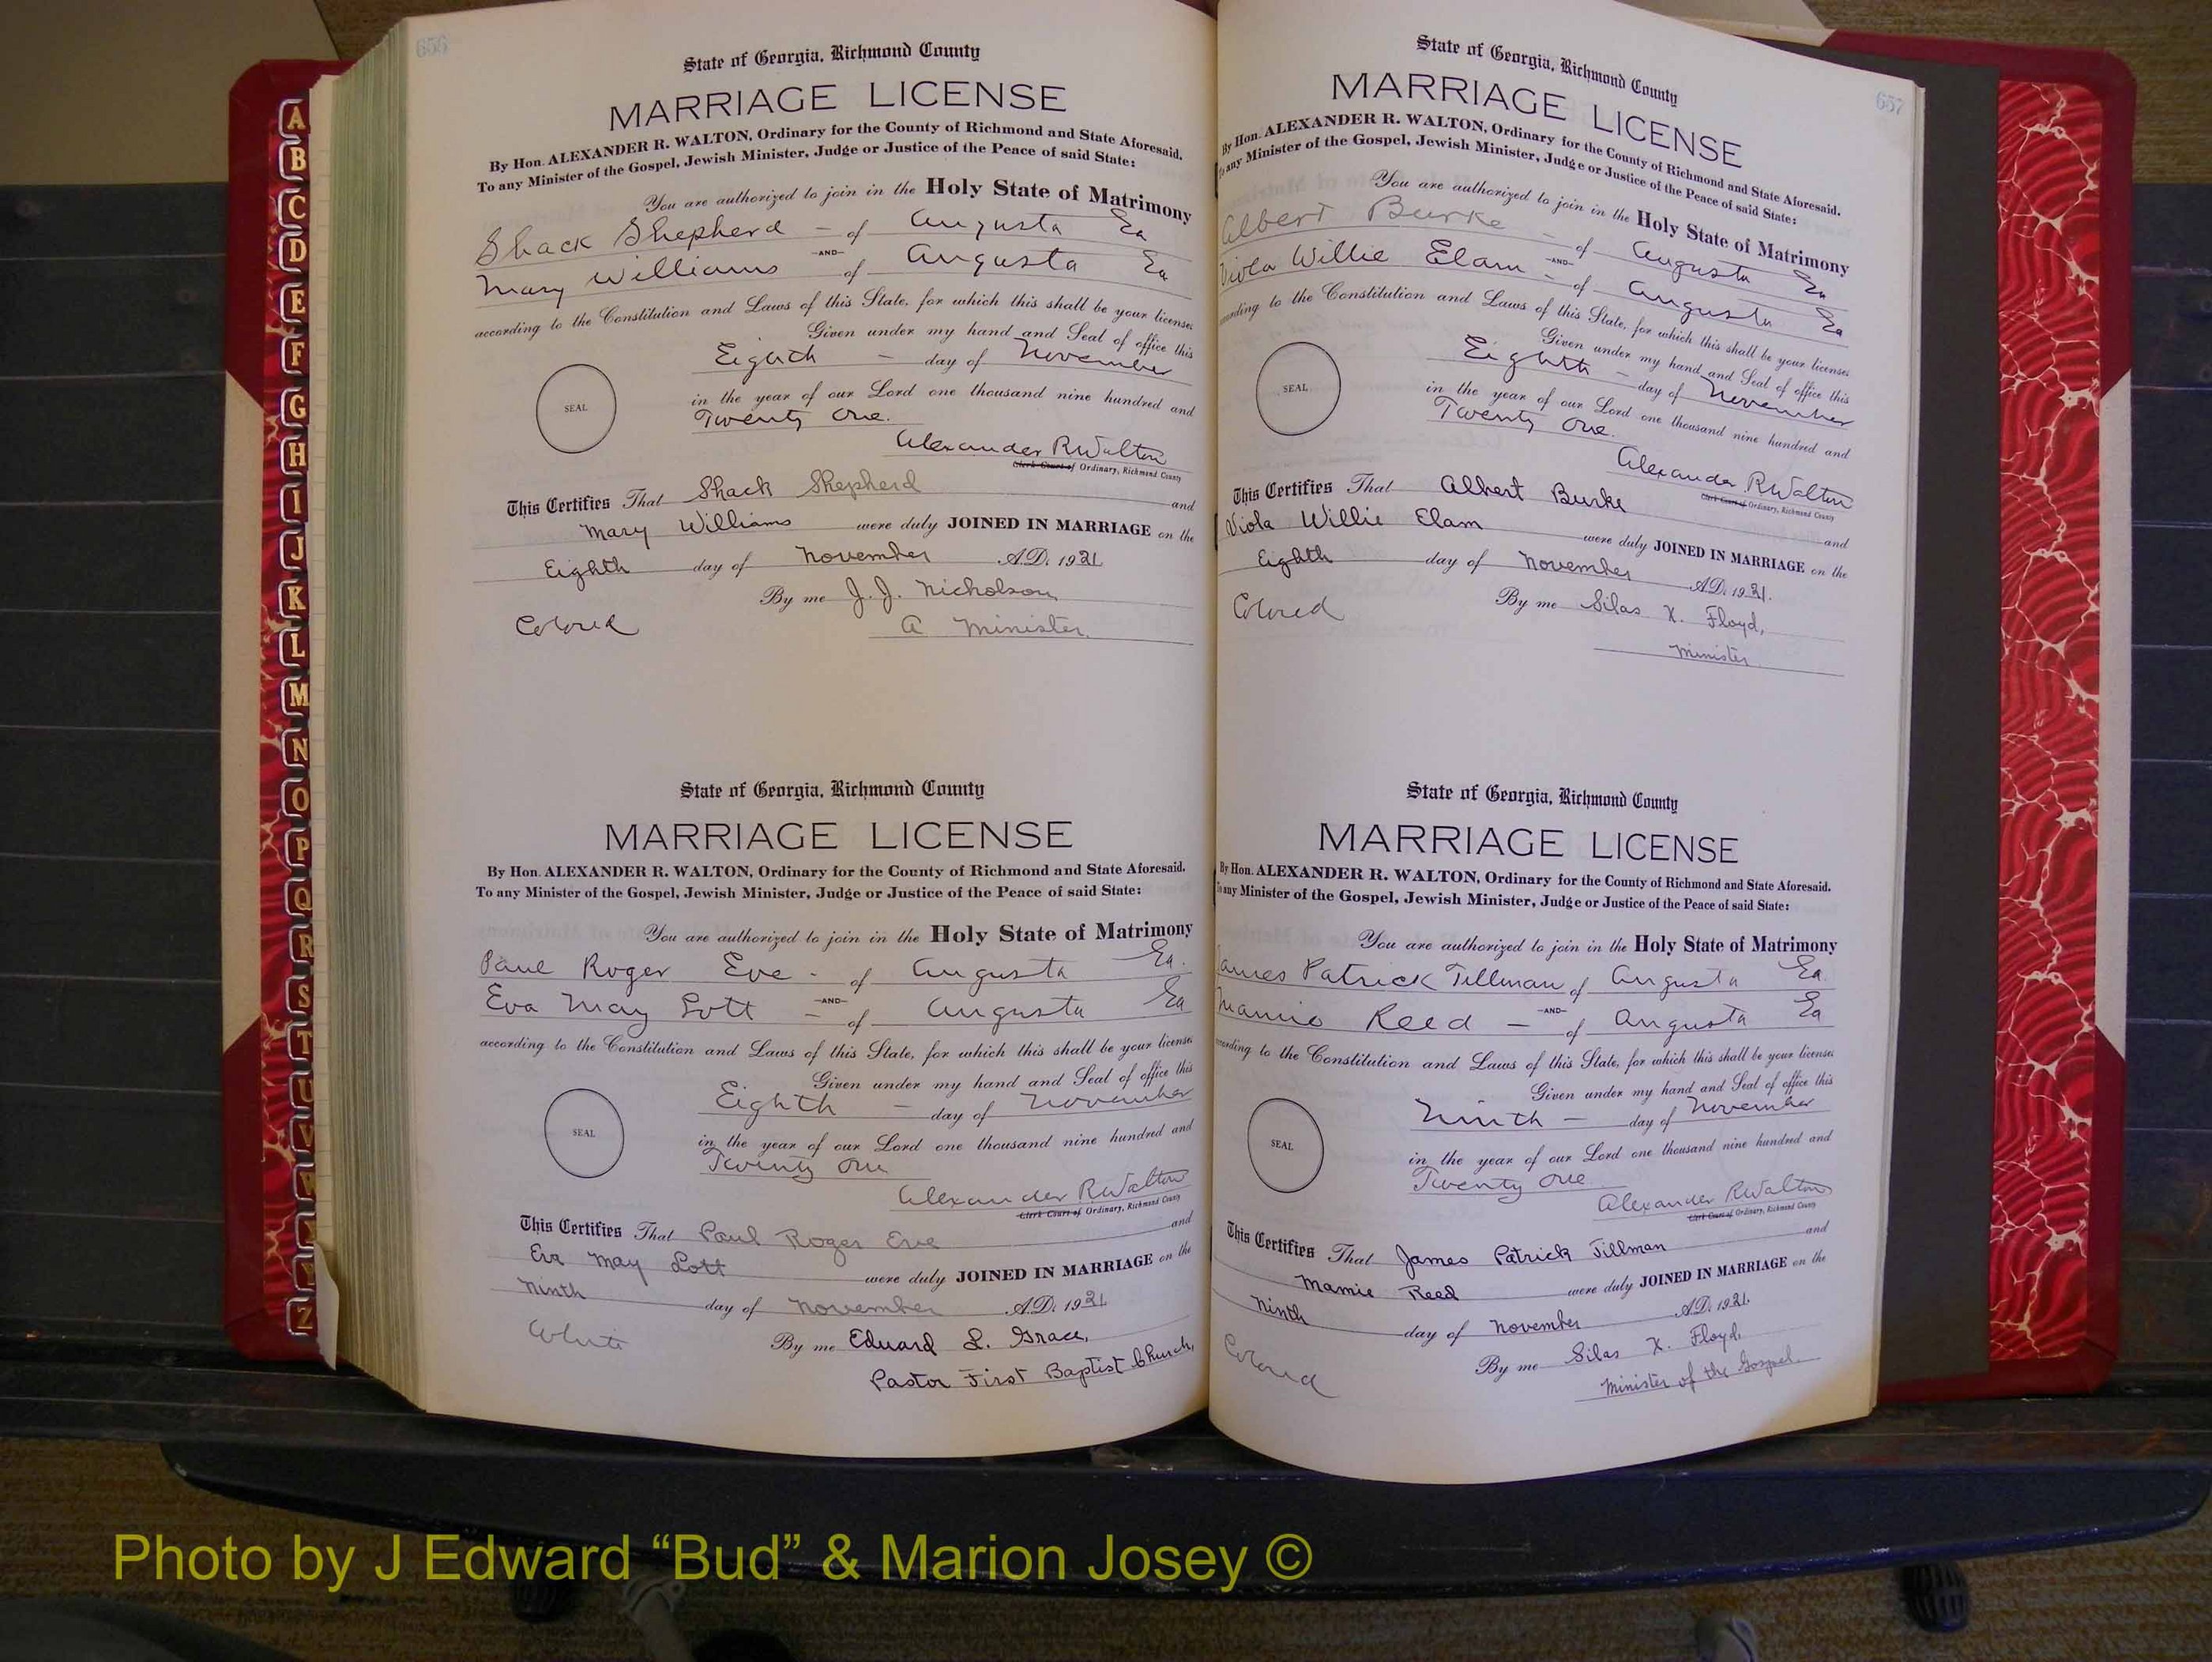 656
State of Georgia, Richmond County
MARRIAGE LICENSE
By Hon. ALEXANDER R. WALTON, Ordinary for the County of Richmond and State Aforesaid.
To any Minister of the Gospel, Jewish Minister, Judge or Justice of the Peace of said State:
You are authorized to join in the Holy State of Matrimony
Shack Shepherd - of Augusta Ga
-AND-
Mary Williams of Augusta Ga
according to the Constitution and Laws of this State, for which this shall be your license
Given under my hand and Seal of office this
Eighth - day of November
SEAL
in the year of our Lord one thousand nine hundred and
Twenty One.
Alexander R Walton
Clerk Court of Ordinary, Richmond County
This Certifies That Shack Shepherd and
Mary Williams were duly JOINED IN MARRIAGE on the
Eighth day of November A.D. 1921.
By me J. J. Nicholson
Colored A Minister.
State of Georgia, Richmond County
MARRIAGE LICENSE
By Hon. ALEXANDER R. WALTON, Ordinary for the County of Richmond and State Aforesaid.
To any Minister of the Gospel, Jewish Minister, Judge or Justice of the Peace of said State:
You are authorized to join in the Holy State of Matrimony
Paul Roger Eve - of Augusta Ga.
-AND-
Eva May Lott - of Augusta Ga
according to the Constitution and Laws of this State, for which this shall be your license
Given under my hand and Seal of office this
Eighth - day of November
SEAL
in the year of our Lord one thousand nine hundred and
Twenty One
Alexander R Walton
Clerk Court of Ordinary, Richmond County
This Certifies That Paul Roger Eve and
Eva May Lott were duly JOINED IN MARRIAGE on the
Ninth day of November A.D. 1921.
White By me Edward L. Grace,
Pastor First Baptist Church,
657
State of Georgia, Richmond County
MARRIAGE LICENSE
By Hon. ALEXANDER R. WALTON, Ordinary for the County of Richmond and State Aforesaid.
To any Minister of the Gospel, Jewish Minister, Judge or Justice of the Peace of said State:
You are authorized to join in the Holy State of Matrimony
Albert Burke - of Augusta Ga
-AND-
Viola Willie Elam - of Augusta Ga
according to the Constitution and Laws of this State, for which this shall be your license
Given under my hand and Seal of office this
Eighth - day of November
SEAL
in the year of our Lord one thousand nine hundred and
Twenty One.
Alexander R Walton
Clerk Court of Ordinary, Richmond County
This Certifies That Albert Burke and
Viola Willie Elam were duly JOINED IN MARRIAGE on the
Eighth day of November A.D. 1921.
Colored By me Silas X. Floyd,
Minister
State of Georgia, Richmond County
MARRIAGE LICENSE
By Hon. ALEXANDER R. WALTON, Ordinary for the County of Richmond and State Aforesaid.
To any Minister of the Gospel, Jewish Minister, Judge or Justice of the Peace of said State:
You are authorized to join in the Holy State of Matrimony
James Patrick Tillman of Augusta Ga.
-AND-
Mamie Reed - of Augusta Ga
according to the Constitution and Laws of this State, for which this shall be your license
Given under my hand and Seal of office this
Ninth - day of November
SEAL
in the year of our Lord one thousand nine hundred and
Twenty One
Alexander R Walton
Clerk Court of Ordinary, Richmond County
This Certifies That James Patrick Tillman and
Mamie Reed were duly JOINED IN MARRIAGE on the
Ninth day of November A.D. 1921.
By me Silas X. Floyd,
Colored Minister of the Gospel.
A
B
C
D
E
F
G
H
I
J
K
L
M
N
O
P
Q
R
S
T
U
V
Z
Photo by J Edward “Bud” & Marion Josey ©